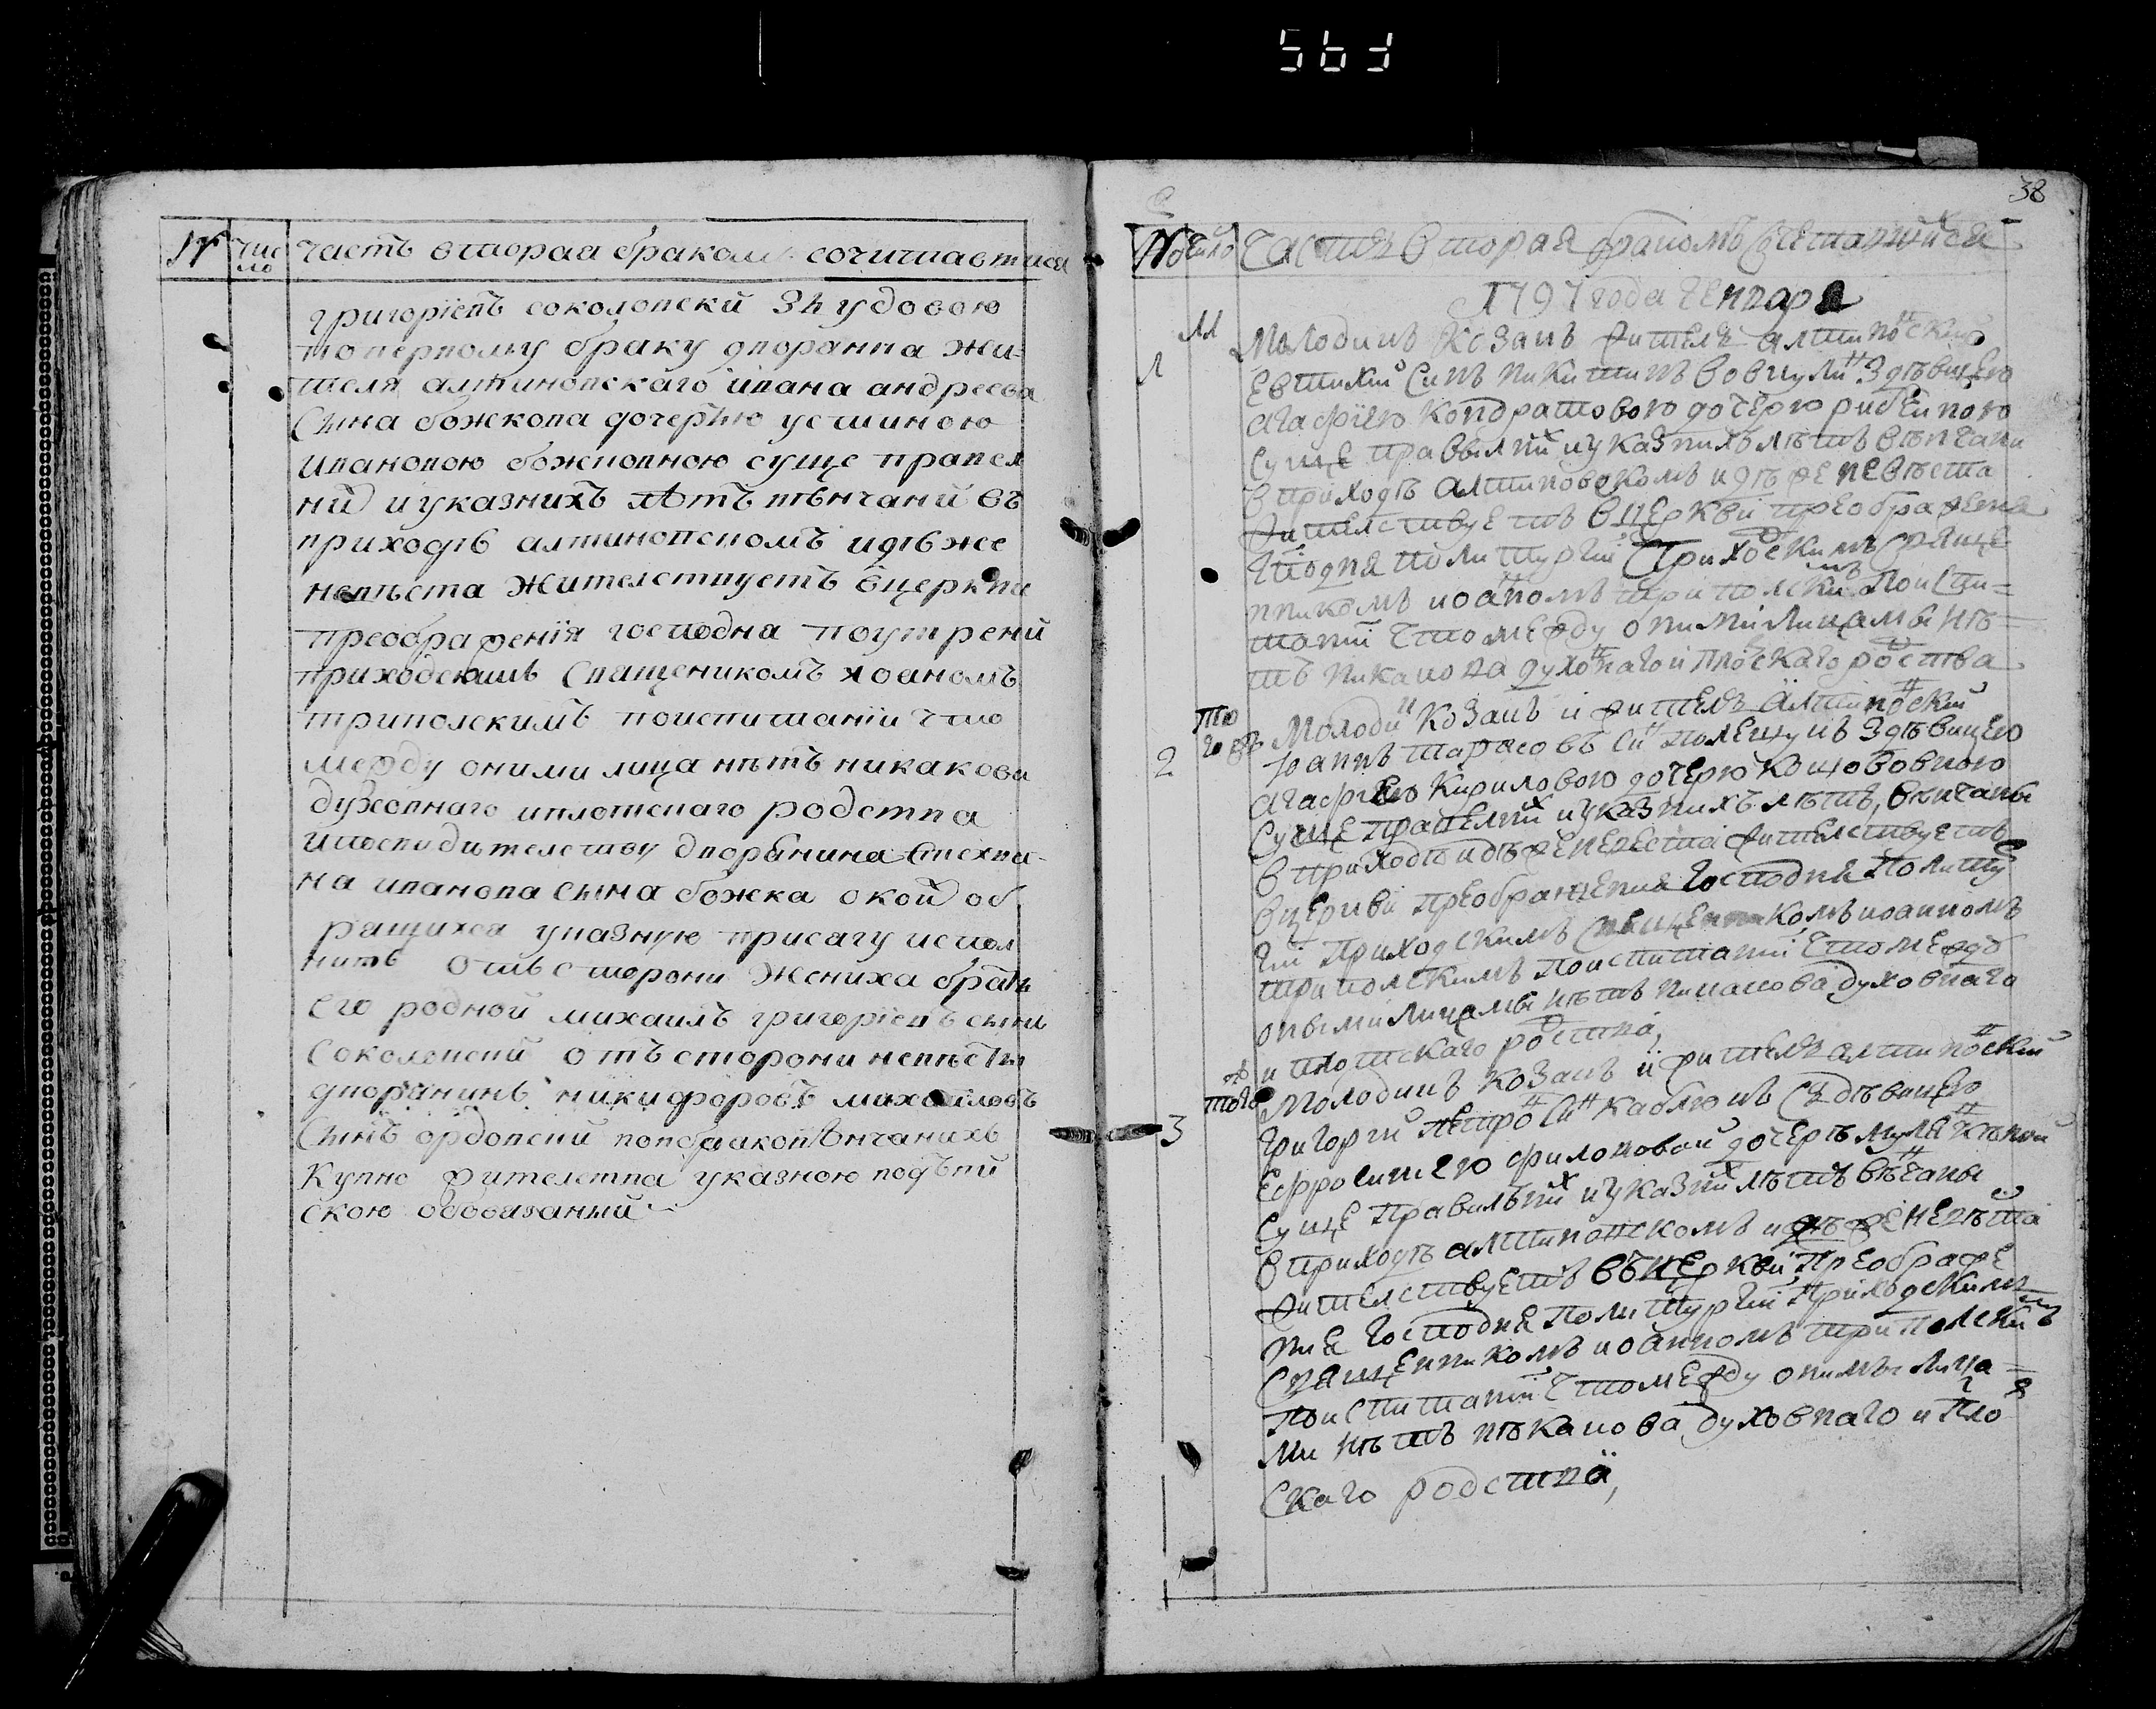 № число часть вторая браком сочитавтися
григоріевъ соколовски за удовою
по первому браку дворанна жи-
теля алтиновскаго ївана андреева
Сина божкова дочерїю устиною
Ивановою божковною суще правел
ни и указнихъ лѣтъ вѣнчани въ
приходѣ алтиновском идѣже
невѣста жителствуетъ вцеркви
преображенїя господна поутрени
приходскимъ Сващеником іоаномъ
триполскимъ поиспитанїи что
между оними лица нѣтъ никакова
духовнаго иплотскаго родства
дворанина Стехва-
на иванова сина божка окой об
указную присагу испол
нитъ отъ сторони жениха братъ
его родной михаилъ григорїевъ синъ
Соколовский отъ сторони невѣсти
дворанинъ никифоровъ михайловъ
Синъ ордовсий
Купно жителства указною подъпи
скою обовязаний
38
№ число Часть вторая браком Сочетавшийся
1797 года Генваря
11
1 Молодикъ Козакъ житель алтиновский
Евтихий Синъ Никитинъ Вовчули Здѣвицею
агафїею Кондратовою дочерю рибеиною
Суще праввилний и указнихъ лѣтъ вѣнчани
вприходѣ алтиновском идѣже невѣста
жителствуетъ вцеркви преображения
Господня политургий Приходским Сряще
нником иоаном триполски поиспи-
тании что между оними лицамы нѣ-
тъ никакова духовнаго и плоскаго роства
того ж
2 Молоди Козакъ и житель алтиновский
Иоаннъ тарасовъ Си Полещукъ Здѣвицею
агафїею Кириловою дочерю Кощововною
Суще правелний и указнихъ лѣтъ, венчаны
вприходѣ идѣже невеста жителствуетъ
вцеркви преображения Господня Политу
гий Приходским Свещенником иоанном
триполским Поиспитании что межд
онымилицамы нѣтъ никакова духовнаго
и плотскаго роства,
того ж
3 Молодикъ Козакъ и житель алтиновский
григорий петро Си Каблюкъ Сздѣвицею
Ефросиниею филоновой дочерѣ
Суще правильний и указний лѣтъ вѣчаны
вприходѣ алтиновском идѣже невѣста
жителствуетъ въцеркви Преображе
ния Господня Политургий Приходским
Сващенником иоанном триполски
Поиспитании что между онимы лица
ми нѣтъ нѣкакова духовнаго и Пло
Скаго родства,